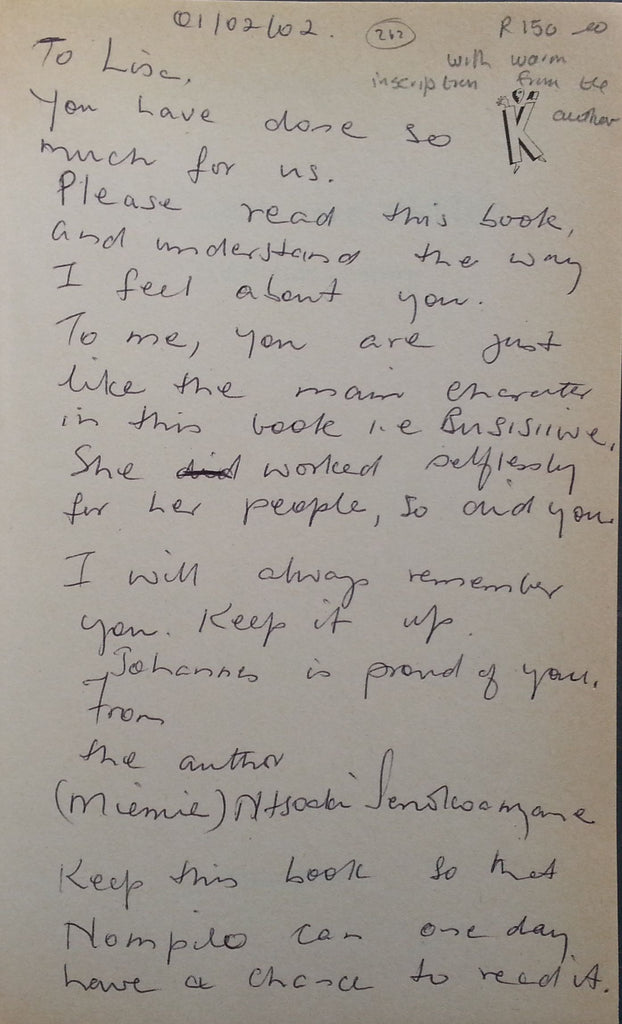 01/02/02.
262
R150-00
with warm
inscription from the
author
K
To Lisa,
You have done so
much for us.
Please read this book,
and understand the way
I feel about you.
To me, you are just
like the main charater
in this book i.e Busisiwe.
She did worked selflessly
for her people, so did you.
I will always remember
you. Keep it up.
Johannes is proud of you.
From
the author
(Miemie) Ntsoaki
Keep this book so that
Nompilo can one day
have a chance to read it.